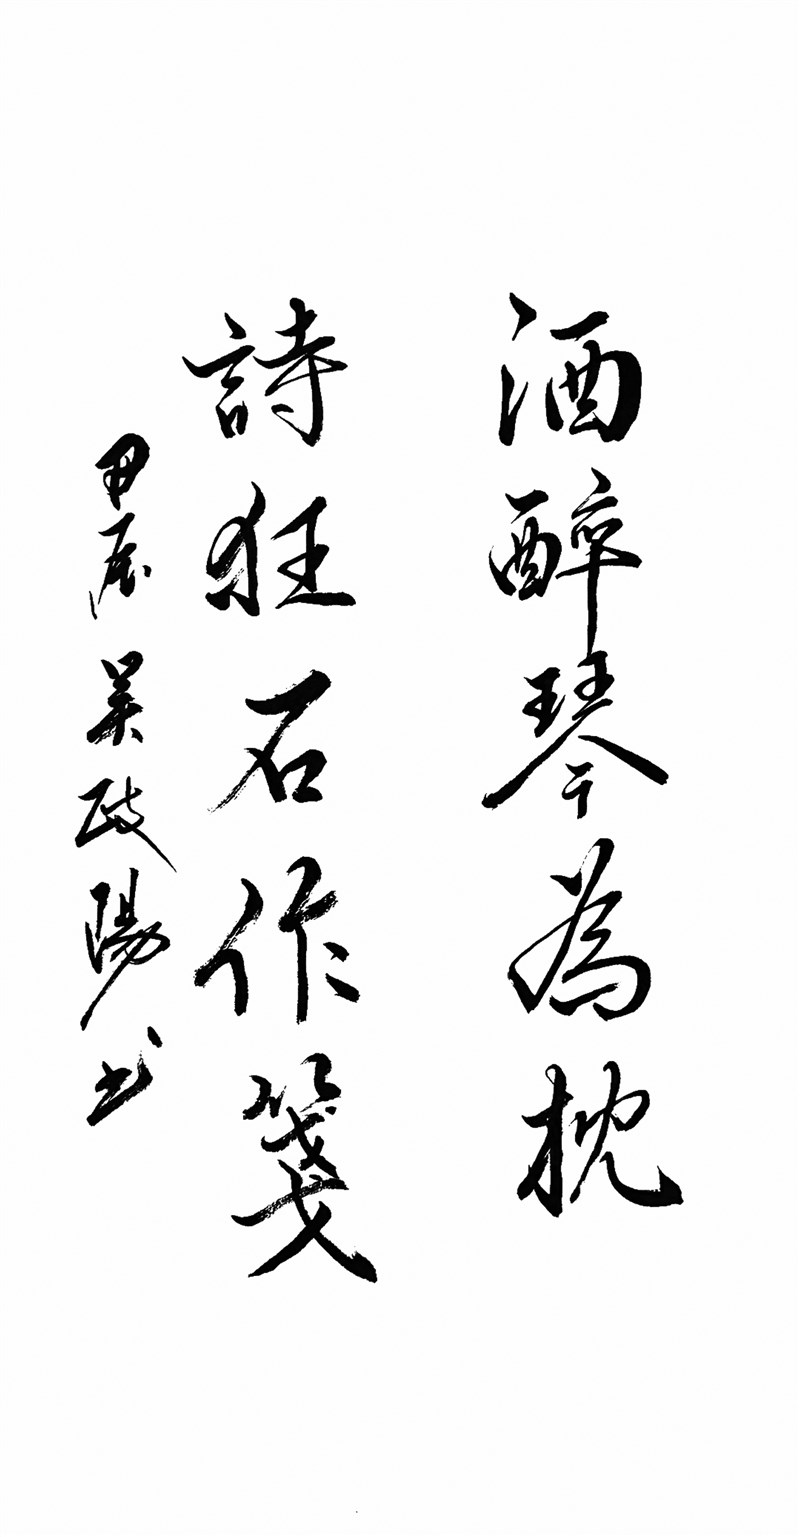 酒醉琴為枕
詩狂石作箋
甲辰 吴政陽书